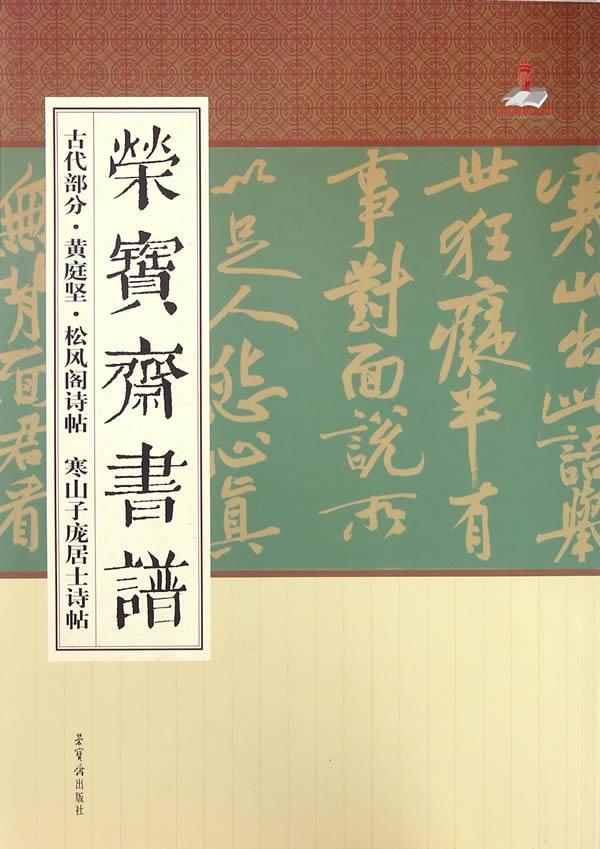 寒山出此語舉
世狂癡半有
事對面說所
以足人怨心真
無背面君看
榮寶齋書譜
古代部分·黄庭坚·松风阁诗帖 寒山子庞居士诗帖
榮寶齋出版社